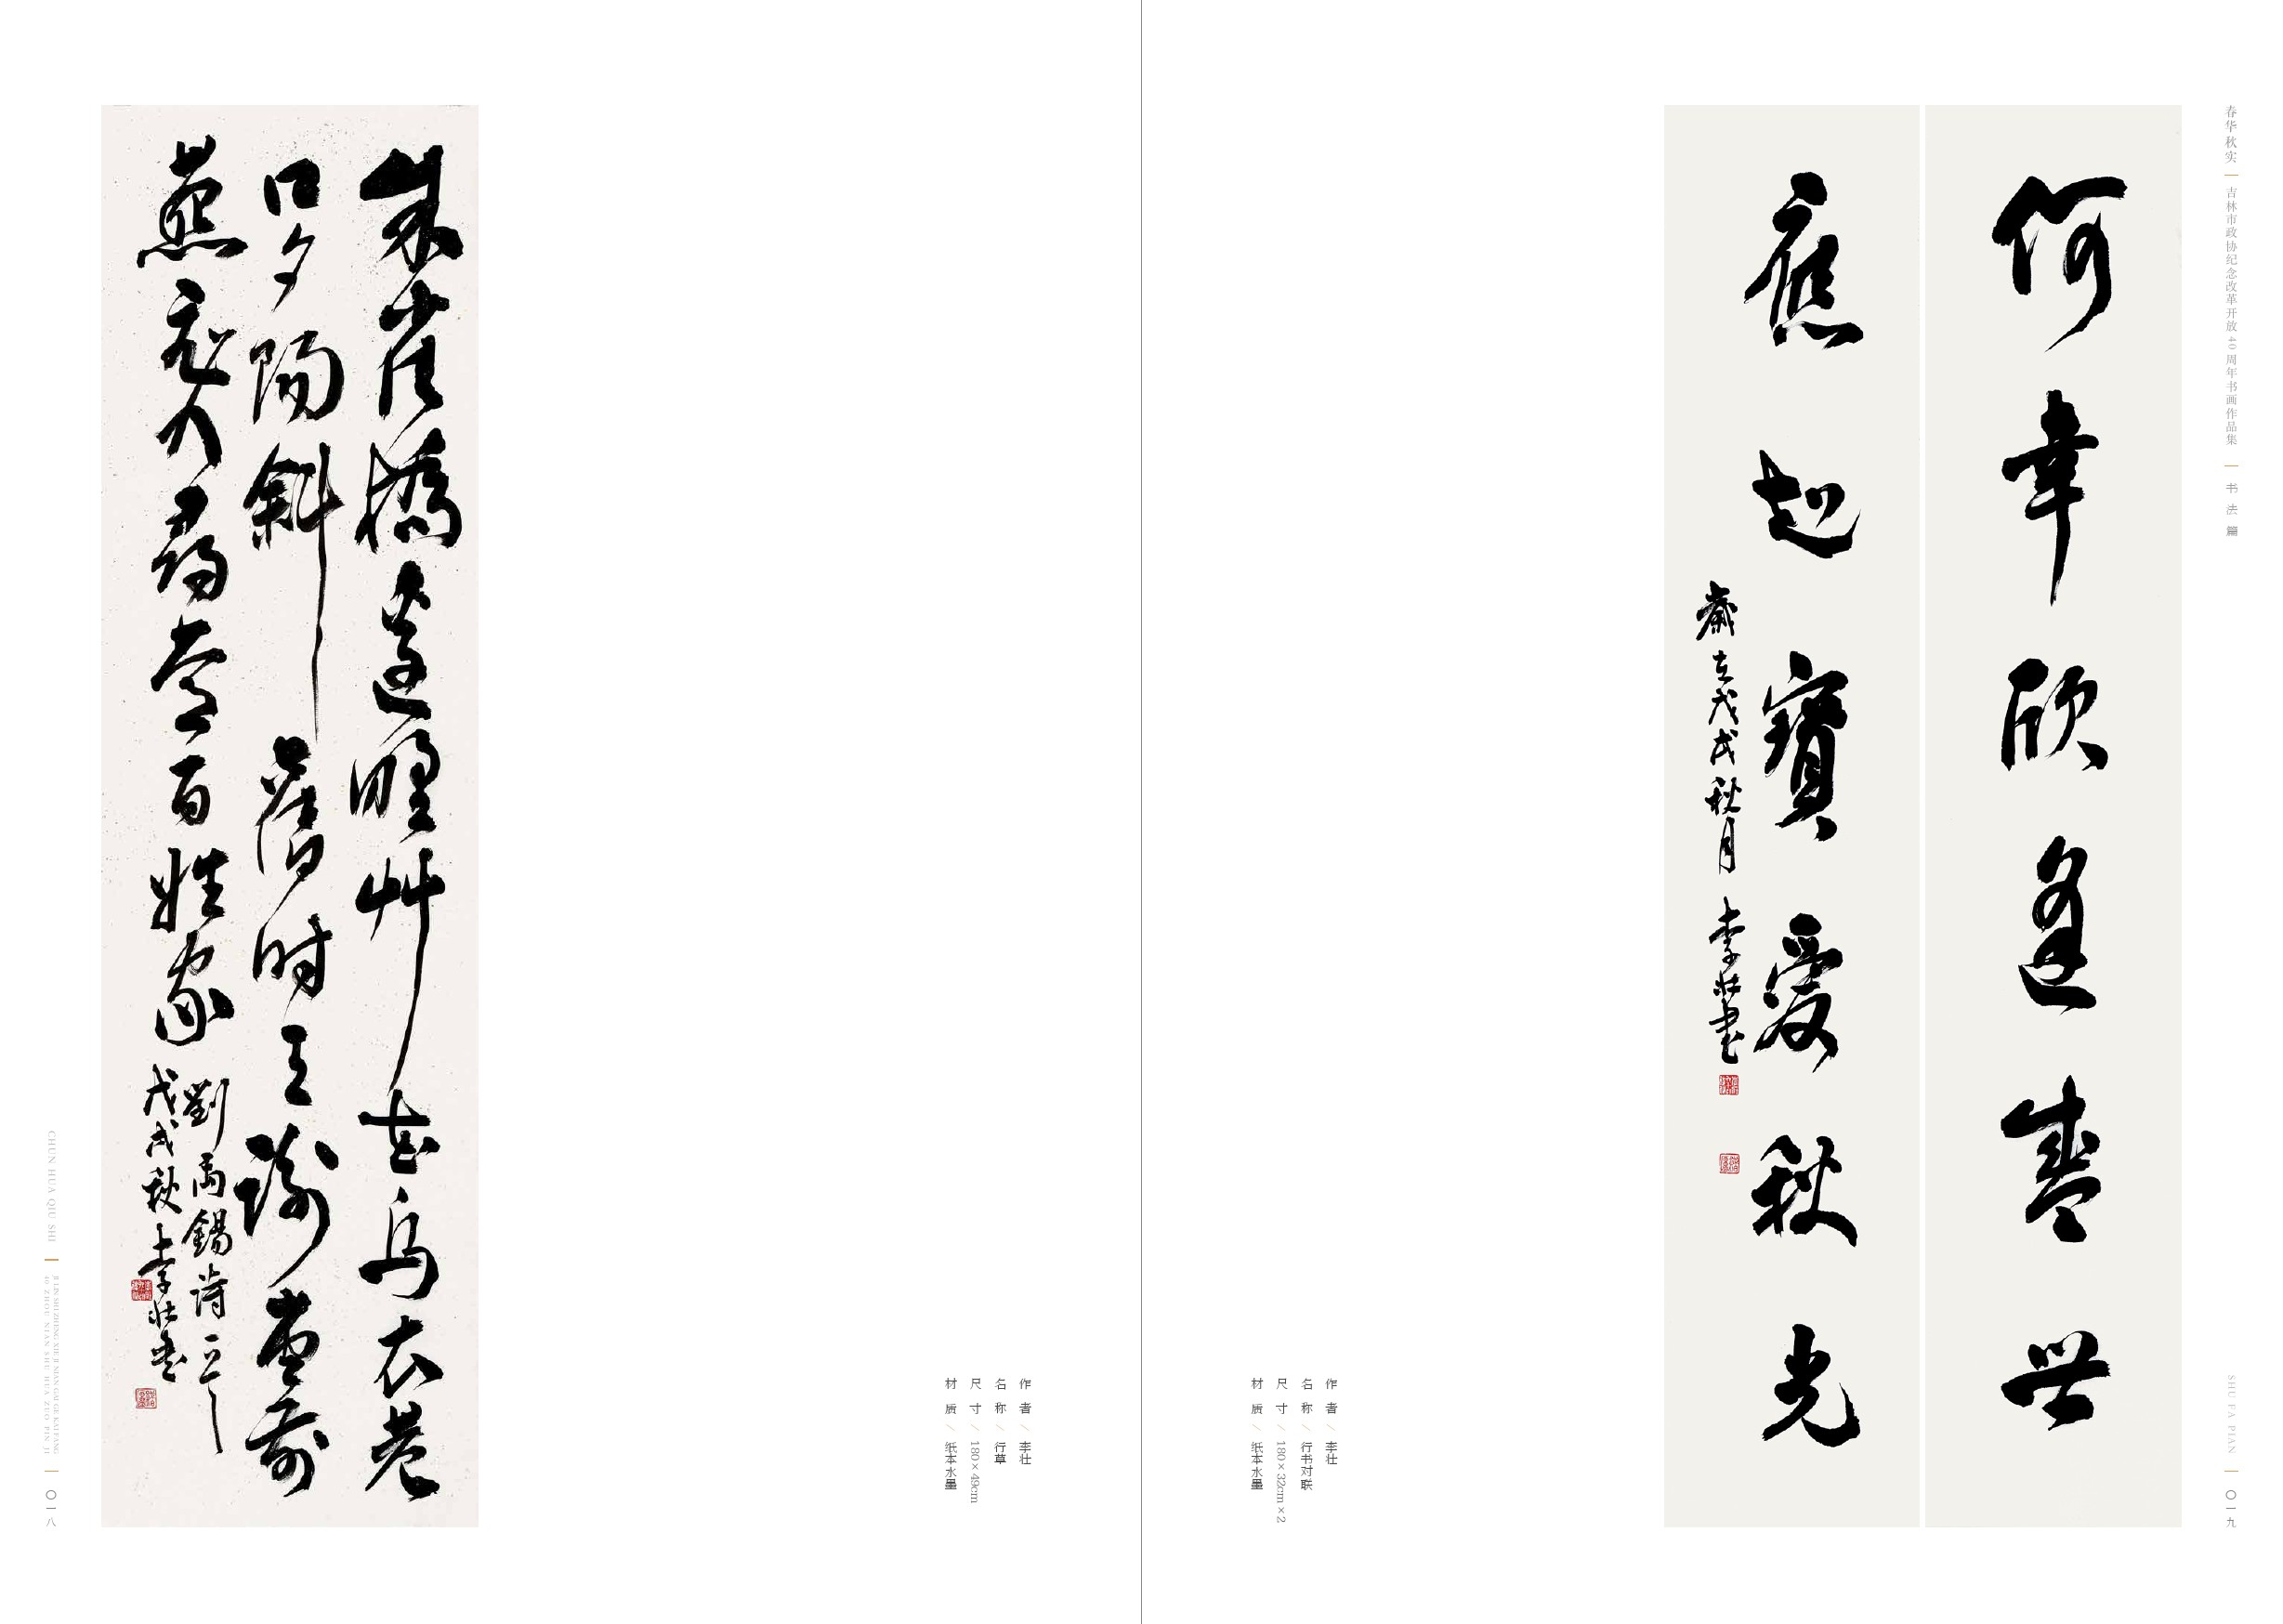 朱雀橋邊野艸花烏衣巷
口夕陽斜舊時王謝堂前
燕飛入尋常百姓家
劉禹錫詩一首
戊戌秋李壯書
作者/李壮
名称/行草
尺寸/180×49cm
材质/纸本水墨
CHUN HUA QIU SHI
JI LIN SHI ZHENG XIE JI NIAN GAI GE KAI FANG
40 ZHOU NIAN SHU HUA ZUO PIN JI
〇一八
春华秋实
吉林市政协纪念改革开放40周年书画作品集
书法篇
何幸欣逢盛世
應起寶愛秋光
歲在戊戌秋月 李壯書
作者/李壮
名称/行书对联
尺寸/180×32cm×2
材质/纸本水墨
SHU FA PIAN
〇一九